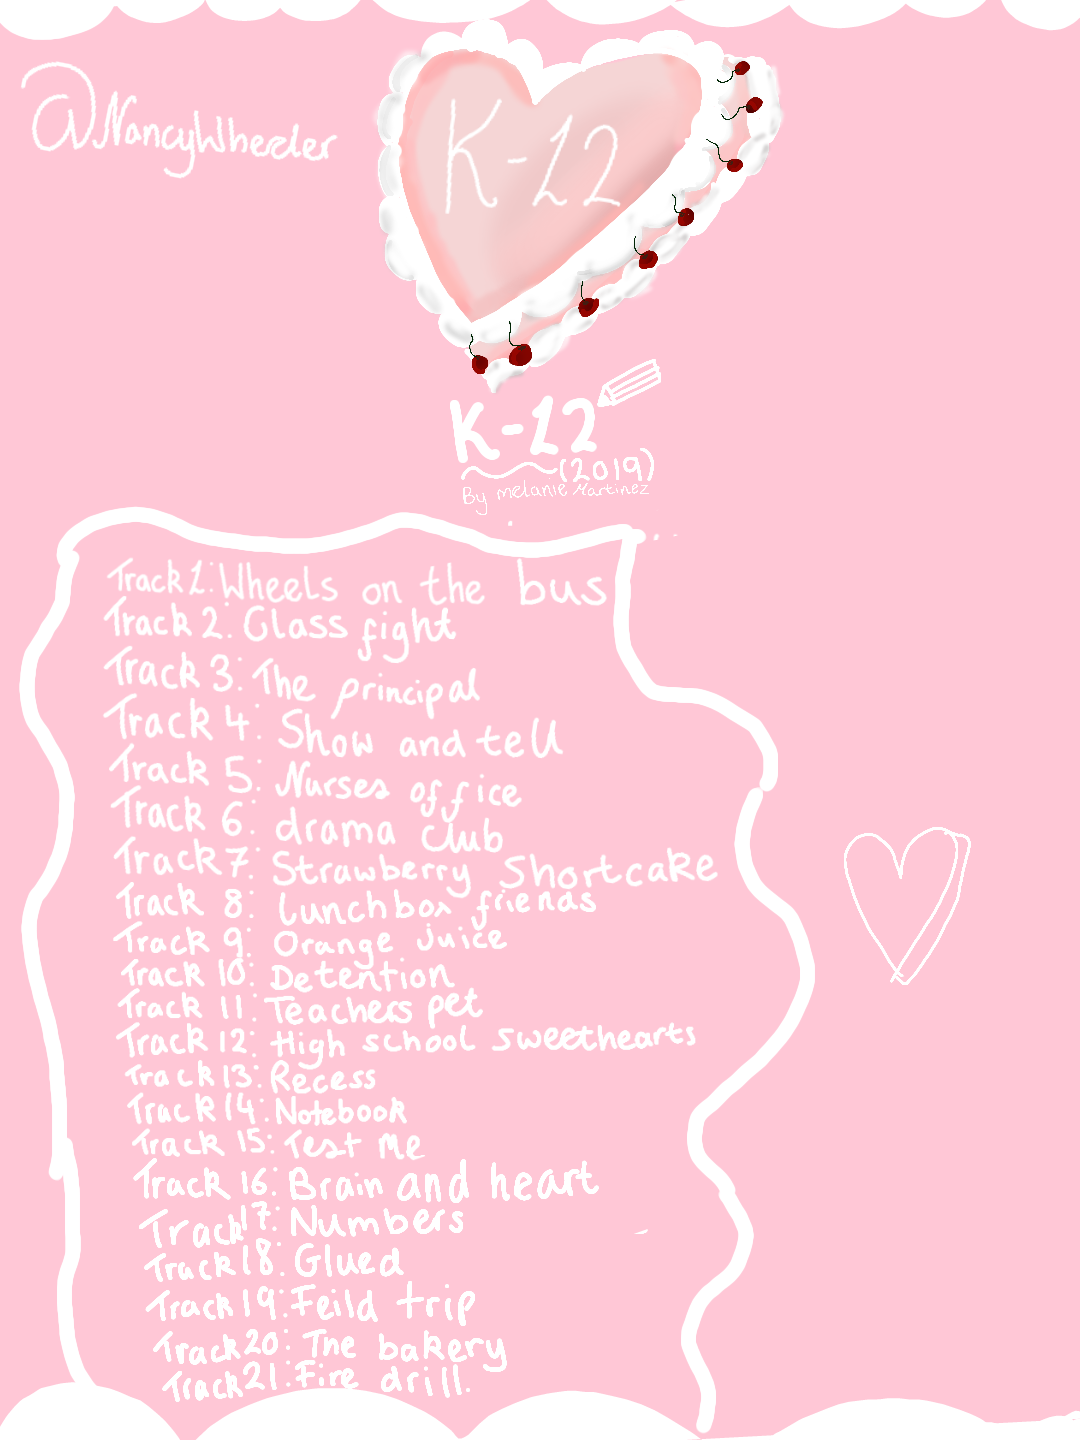 @NancyWheeler
K-12
K-12
(2019)
By melanie Martinez
Track 1: Wheels on the bus
Track 2: Class fight
Track 3: The principal
Track 4: Show and tell
Track 5: Nurses office
Track 6: drama club
Track 7: Strawberry Shortcake
Track 8: Lunchbox friends
Track 9: Orange juice
Track 10: Detention
Track 11: Teachers pet
Track 12: High school sweethearts
Track 13: Recess
Track 14: Notebook
Track 15: Test Me
Track 16: Brain and heart
Track 17: Numbers
Track 18: Glued
Track 19: Feild trip
Track 20: The bakery
Track 21: Fire drill.